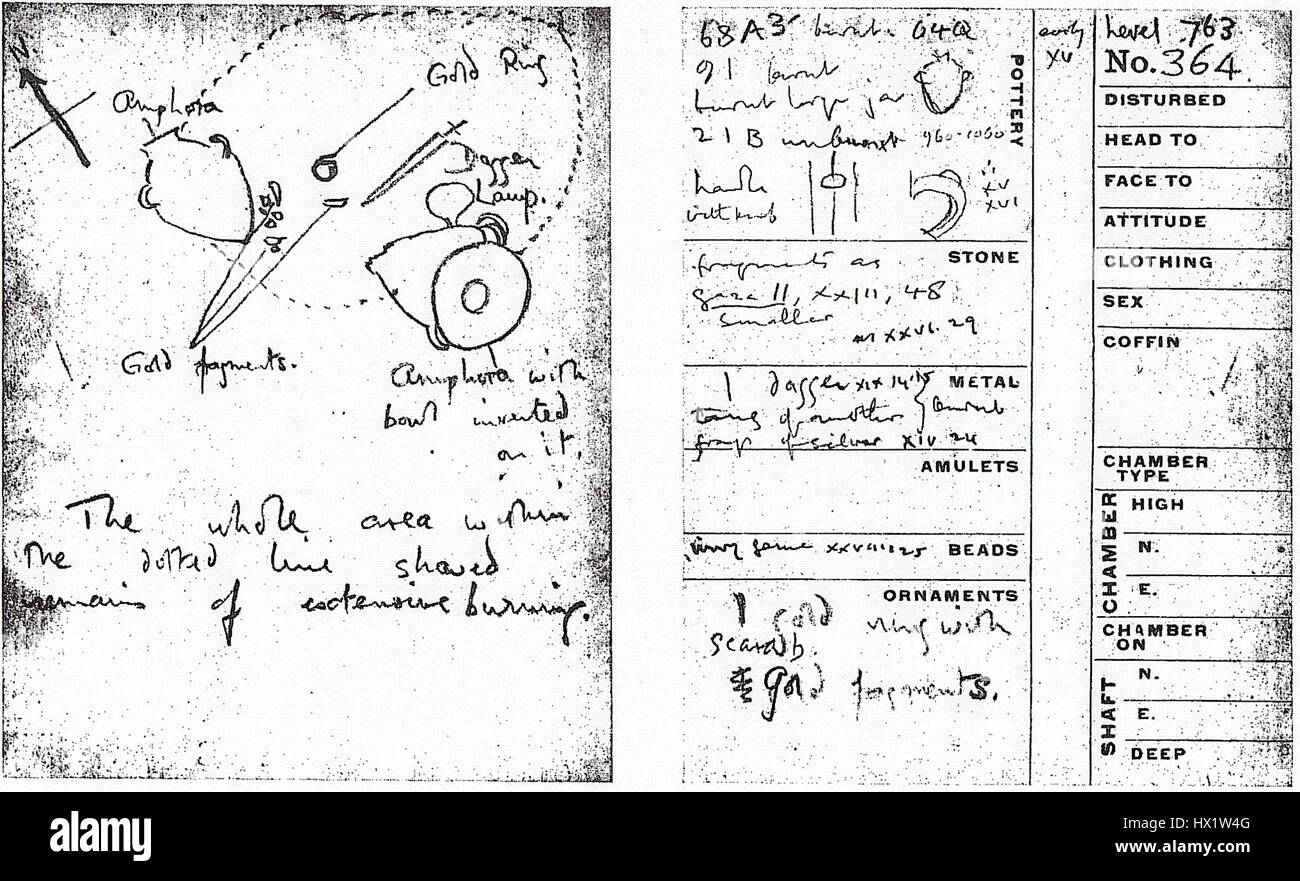 N.
Amphora
Gold Ring
Dagger
Lamp.
Gold fragments.
Amphora with
bowl inverted
on it.
The whole area within
the dotted line showed
remains of extensive burning.
68A3 burnt 64Q
91 burnt
burnt large jar
21B unburnt 960-1060
handle
with knob
XV
XVI
POTTERY
early
XV
Level 763
No. 364.
DISTURBED
HEAD TO
FACE TO
ATTITUDE
CLOTHING
SEX
COFFIN
fragments as
STONE
Gaza II, XXIII, 48
smaller
XXVI. 29
1 dagger XIX 14-15
METAL
tang of another
burnt
frag of silver XIV 24
AMULETS
XXVIII 125
BEADS
ORNAMENTS
1 gold ring with
scarab.
gold fragments.
CHAMBER
TYPE
CHAMBER
HIGH
N.
E.
CHAMBER
ON
SHAFT
N.
E.
DEEP
alamy stock photo
HX1W4G
www.alamy.com